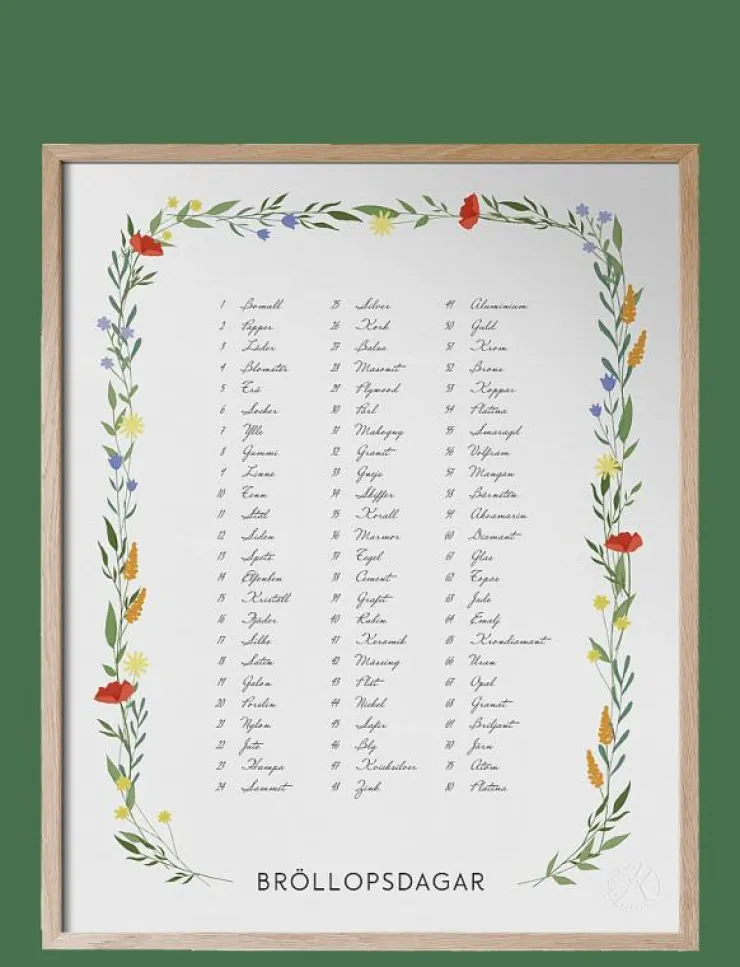 1 Bomull
2 Papper
3 Läder
4 Blomster
5 Trä
6 Socker
7 Ylle
8 Gummi
9 Linne
10 Tenn
11 Stål
12 Siden
13 Spets
14 Elfenben
15 Kristall
16 Fjäder
17 Silke
18 Satin
19 Galon
20 Porslin
21 Nylon
22 Jute
23 Hampa
24 Sammet
25 Silver
26 Kork
27 Balsa
28 Masonit
29 Plywood
30 Pärl
31 Mahogny
32 Granit
33 Gnejs
34 Skiffer
35 Korall
36 Marmor
37 Tegel
38 Cement
39 Grafit
40 Rubin
41 Keramik
42 Mässing
43 Plåt
44 Nickel
45 Safir
46 Bly
47 Kvicksilver
48 Zink
49 Aluminium
50 Guld
51 Krom
52 Brons
53 Koppar
54 Platina
55 Smaragd
56 Volfram
57 Mangan
58 Bärnsten
59 Akvamarin
60 Diamant
61 Glas
62 Topas
63 Jade
64 Emalj
65 Krondiamant
66 Uran
67 Opal
68 Granat
69 Briljant
70 Järn
75 Atom
80 Platina
BRÖLLOPSDAGAR
K